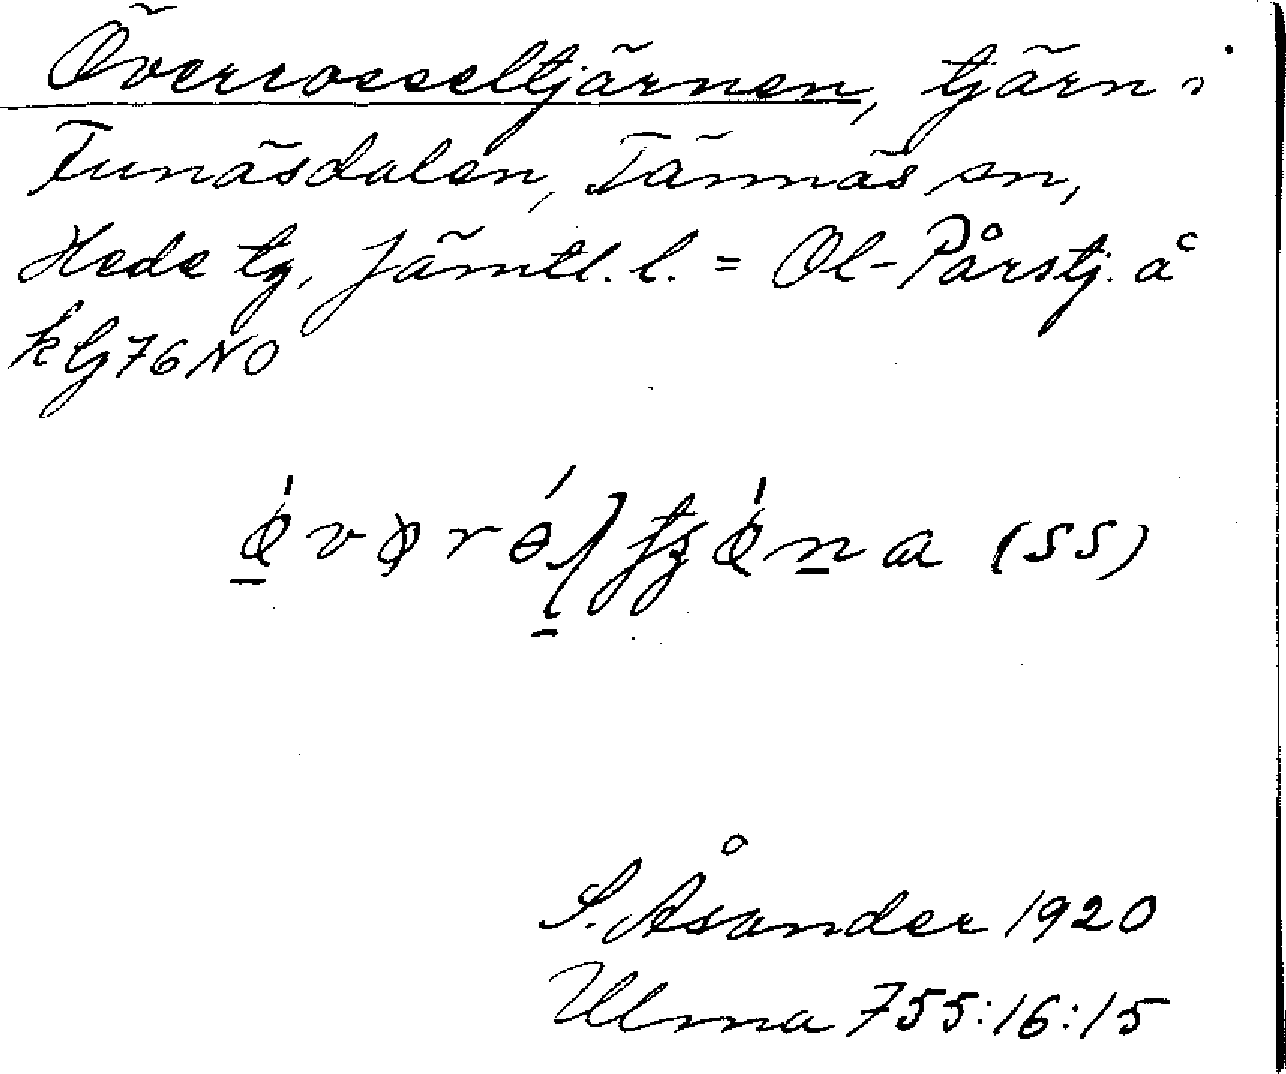 Överrosseltjärnen, tjärn i
Funäsdalen, Tännäs sn,
Hede tg, Jämtl. l. = Ol-Pårstj. å
k bl 76 NO
(SS)
S. Åsander 1920
Ulma 755:16:15